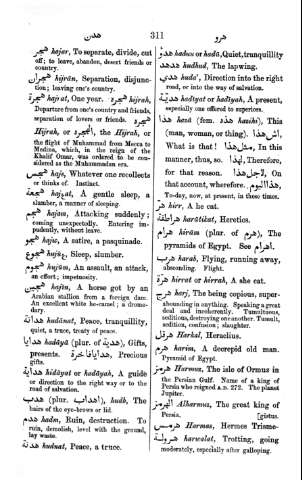 هدن 311 هرو
هجر hajar, To separate, divide, cut
off; to leave, abandon, desert friends or
country.
هجران hijrān, Separation, disjunc-
tion; leaving one's country.
هجرة hajrat, One year. هجرة hijrah,
Departure from one's country and friends,
separation of lovers or friends. هجرة
Hijrah, or الهجرة, the Hijrah, or
the flight of Muhammad from Mecca to
Medina, which, in the reign of the
Khalif Omar, was ordered to be con-
sidered as the Muhammadan era.
hajs, Whatever one recollects
or thinks of. Instinct.
هجعة A gentle sleep, a
slumber, a manner of sleeping.
هجم hajam, Attacking suddenly;
coming unexpectedly. Entering im-
pudently, without leave.
هجو hajo, A satire, a pasquinade.
هجوع Sleep, slumber.
هجوم hujūm, An assault, an attack,
an effort; impetuosity.
هجين hajīn, A horse got by an
Arabian stallion from a foreign dam.
An excellent white he-camel; a drome-
dary.
هدانة hadānat, Peace, tranquillity,
quiet, a truce, treaty of peace.
هدايا hadāyā (plur. of هدية), Gifts,
presents. هدايا فاخرة Precious
gifts.
هداية hidāyat or hadāyah, A guide
or direction to the right way or to the
road of salvation.
هدب (plur. اهداب), hudb, The
hairs of the eye-brows or lid
هدم hadm, Ruin, destruction. To
ruin, demolish, level with the ground,
lay waste.
هدنة hudnat, Peace, a truce.
هدو Quiet, tranquillity
هدهد hudhud, The lapwing.
هدي Direction into the right
road, or into the way of salvation.
هدية hadīyat or hadīyah, A present,
especially one offered to superiors.
هذا hazā (fem. هذه hazihi), This
(man, woman, or thing). اش هذا
What is that! هكذا In this
manner, thus, so. لهذا Therefore,
for that reason. لاجل هذا On
that account, wherefore. هذا اليوم
To-day, now, at present, in these times.
هر hirr, A he cat.
هراطقة harātikat, Heretics.
هرام hirām (plur. of هرم), The
pyramids of Egypt. See اهرام.
هرب harab, Flying, running away,
absconding. Flight.
هرة hirrat or hirrah, A she cat.
هرج harj, The being copious, super-
abounding in anything. Speaking a great
deal and incoherently. Tumultuous,
seditious, destroying one another. Tumult,
sedition, confusion; slaughter.
هرقل Harkal, Heraclius.
هرم harim, A decrepid old man.
Pyramid of Egypt.
هرمز Harmuz, The isle of Ormus in
the Persian Gulf. Name of a king of
Persia who reigned A.D. 272. The planet
Jupiter.
الهرمز Alharmuz, The great king of
Persia. [gistus.
هرمس Harmas, Hermes Trisme-
هرولة harwalat, Trotting, going
moderately, especially after galloping.